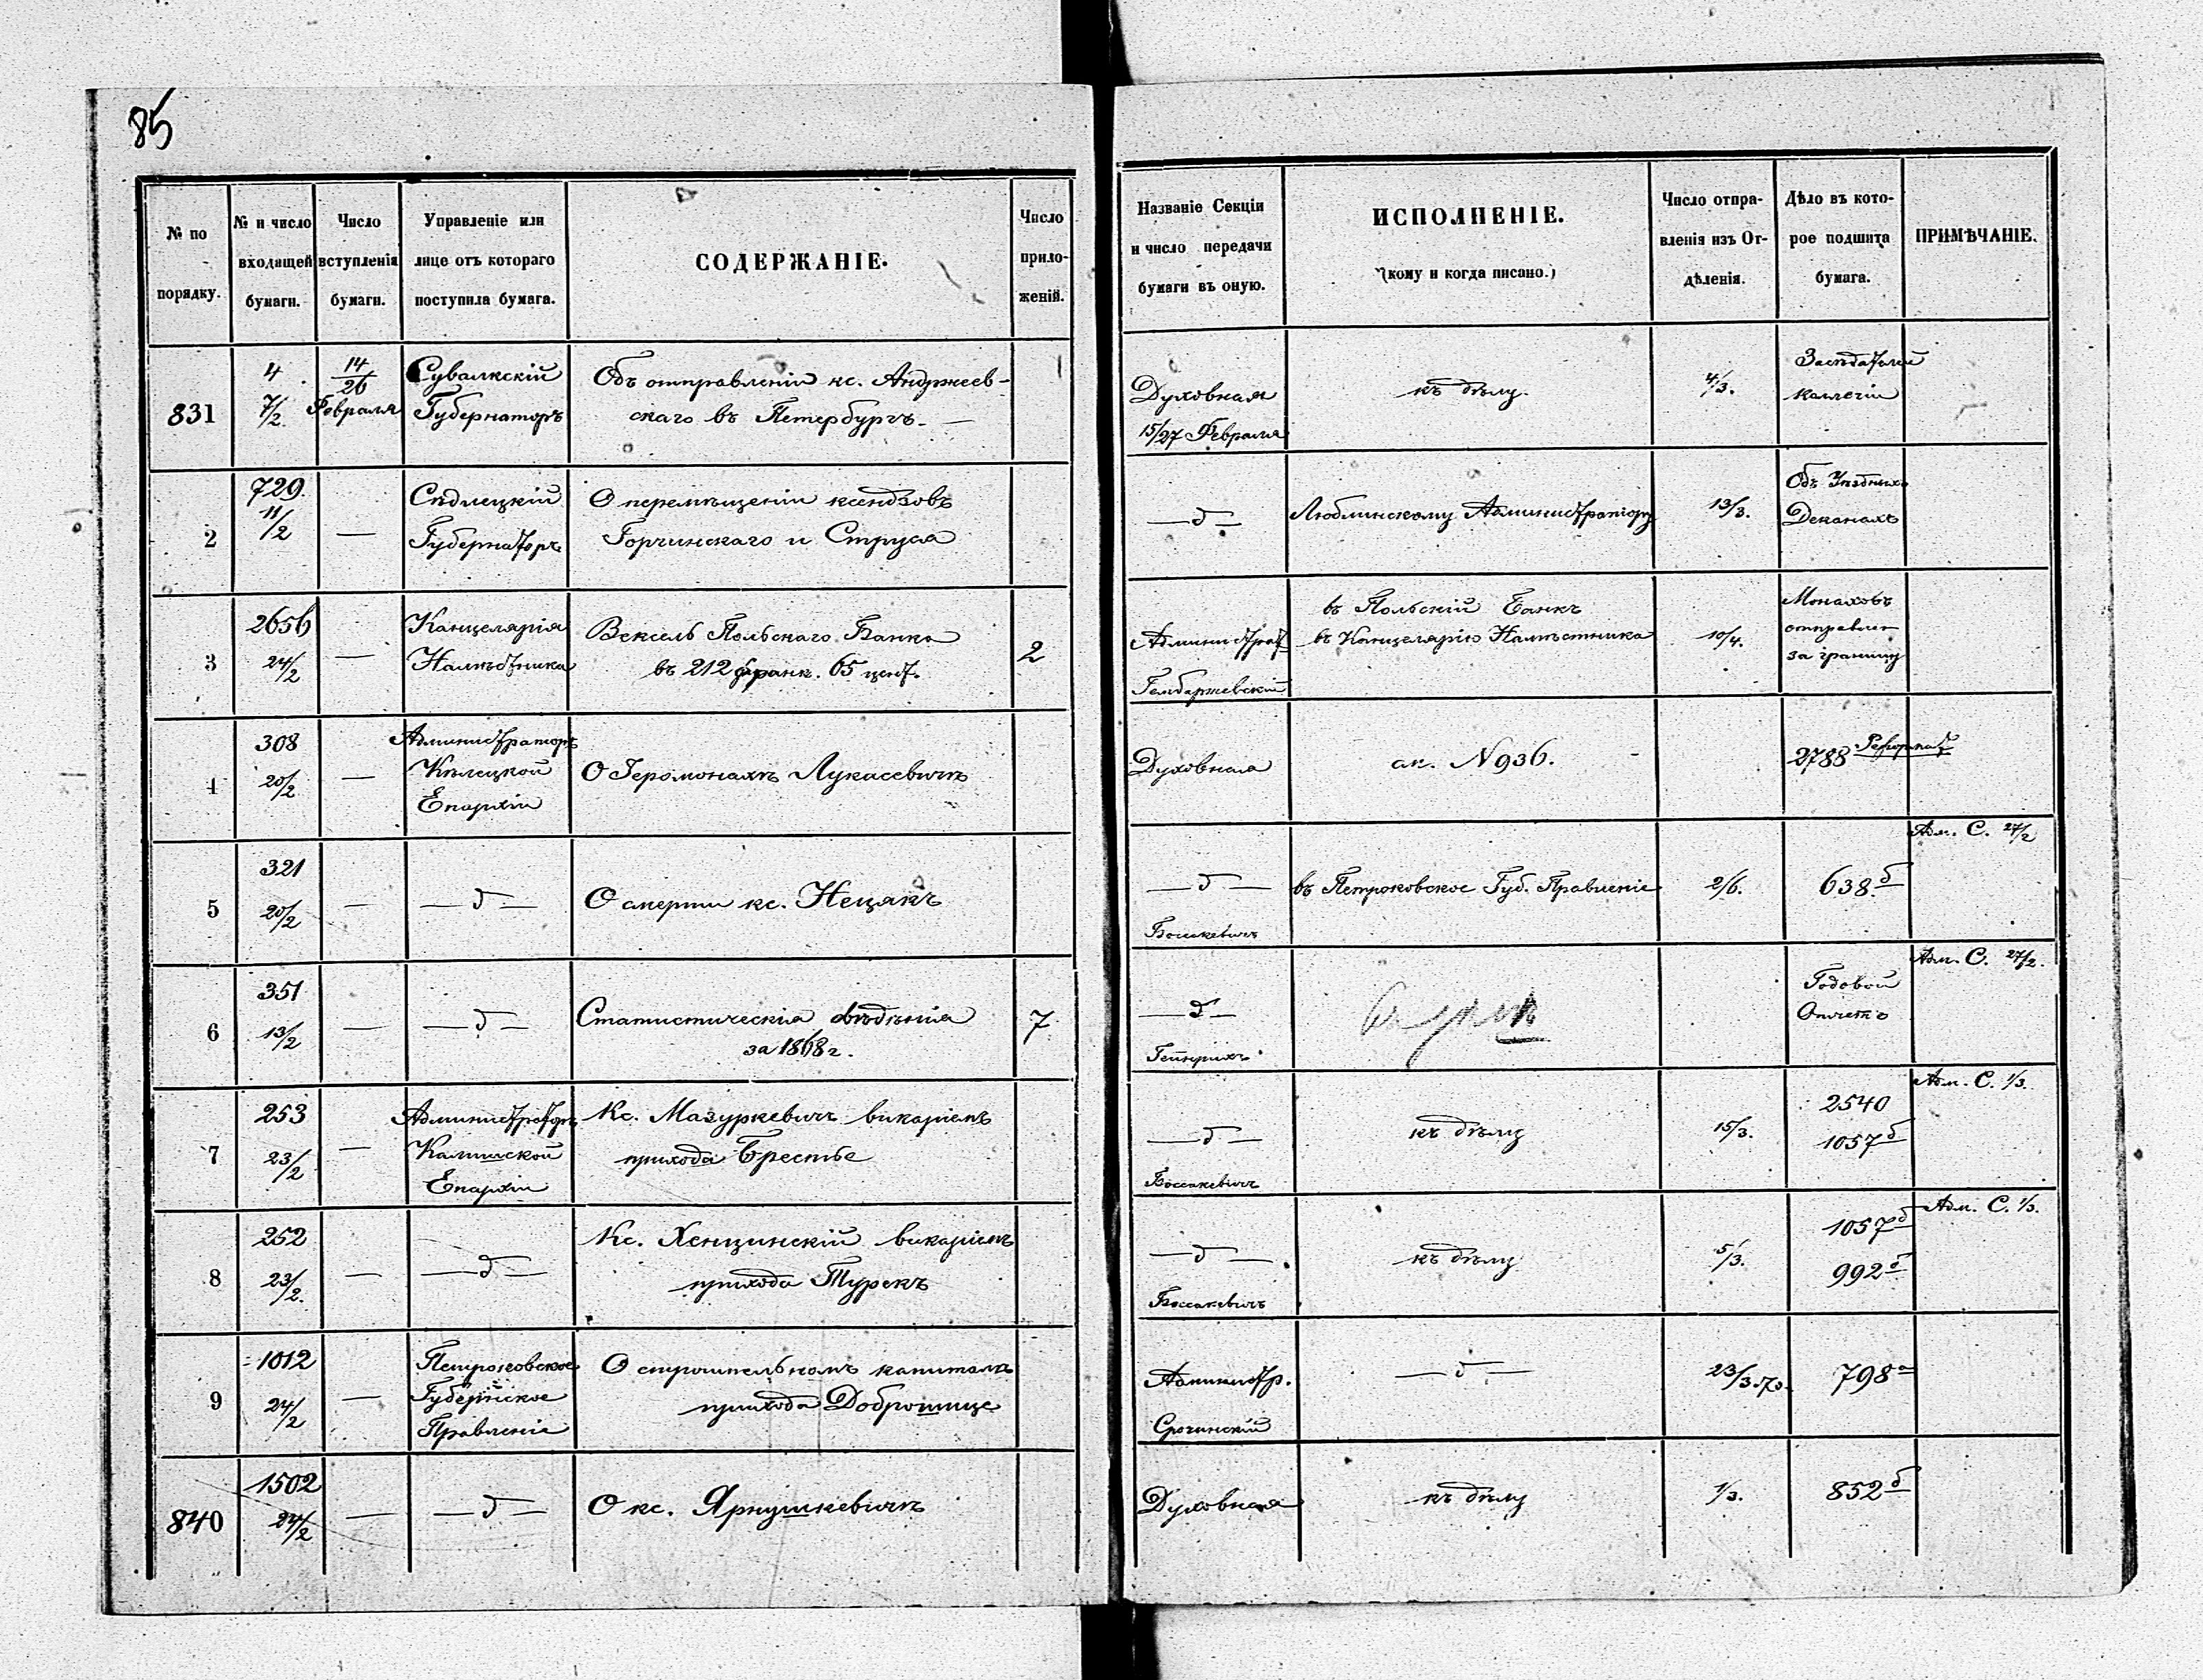 85
№ по порядку.
№ и число входящей бумаги.
Число вступленія бумаги.
Управленіе или лице отъ котораго поступила бумага.
СОДЕРЖАНІЕ.
Число приложеній.
Названіе Секціи и число передачи бумаги въ оную.
ИСПОЛНЕНІЕ.
(кому и когда писано.)
Число отправленія изъ Отдѣленія.
Дѣло въ которое подшита бумага.
ПРИМѢЧАНІЕ.
831
4
7/2.
14/26
Февраля
Сувалкскій
Губернаторъ
Объ отправленіи кс. Анджеев-
скаго въ Петербургъ. —
Духовная
15/27 Февраля
къ дѣлу.
4/3.
Засѣдателей
Коллегіи
2
729.
11/2
—
Сѣдлецкій
Губернаторъ
О перемѣщеніи ксендзовъ
Горчинскаго и Струса
— д —
Люблинскому Администратору
13/3.
Объ Уѣздныхъ
Деканахъ
3
2656
24/2
—
Канцелярія
Намѣстника
Вексель Польскаго Банка
въ 212 франк. 65 цент.
2
Администрат
въ Польскій Банкъ
въ Канцелярію Намѣстника
10/4.
Монаховъ
отправлен
за границу
4
308
20/2
—
Администраторъ
Кѣлецкой
Епархіи
О Іеромонахѣ Лукасевичѣ
Духовная
ак. N 936.
2788
5
321
20/2
—
— д —
О смерти кс. Нецякъ
— д —
въ Петроковское Губ. Правленіе
2/6.
638.б
Адм. С. 27/2
6
351
13/2
—
— д —
Статистическія свѣдѣнія
за 1868 г.
7
— д —
Гейнрихъ
Годовой
Отчетъ
Адм. С. 27/2.
7
253
23/2
—
Администраторъ
Калишской
Епархіи
Кс. Мазуркевичъ викаріемъ
прихода Брестье
— д —
Боссакевичъ
къ дѣлу
15/3.
2540
1057б
Адм. С. 1/3.
8
252
23/2.
—
— д —
Кс. Хенцинскій викаріемъ
прихода Турекъ
— д —
Боссакевичъ
къ дѣлу
5/3.
1057б
992б
Адм. С. 1/3.
9
1012
24/2
—
Петроковское
Губернское
Правленіе
О строительномъ капиталѣ
прихода Доброшице
Администр.
Срочинскій
— д —
23/3.70.
798а
840
1502
24/2
—
— д —
О кс. Яркушкевичѣ
Духовная
къ дѣлу
1/3.
852б